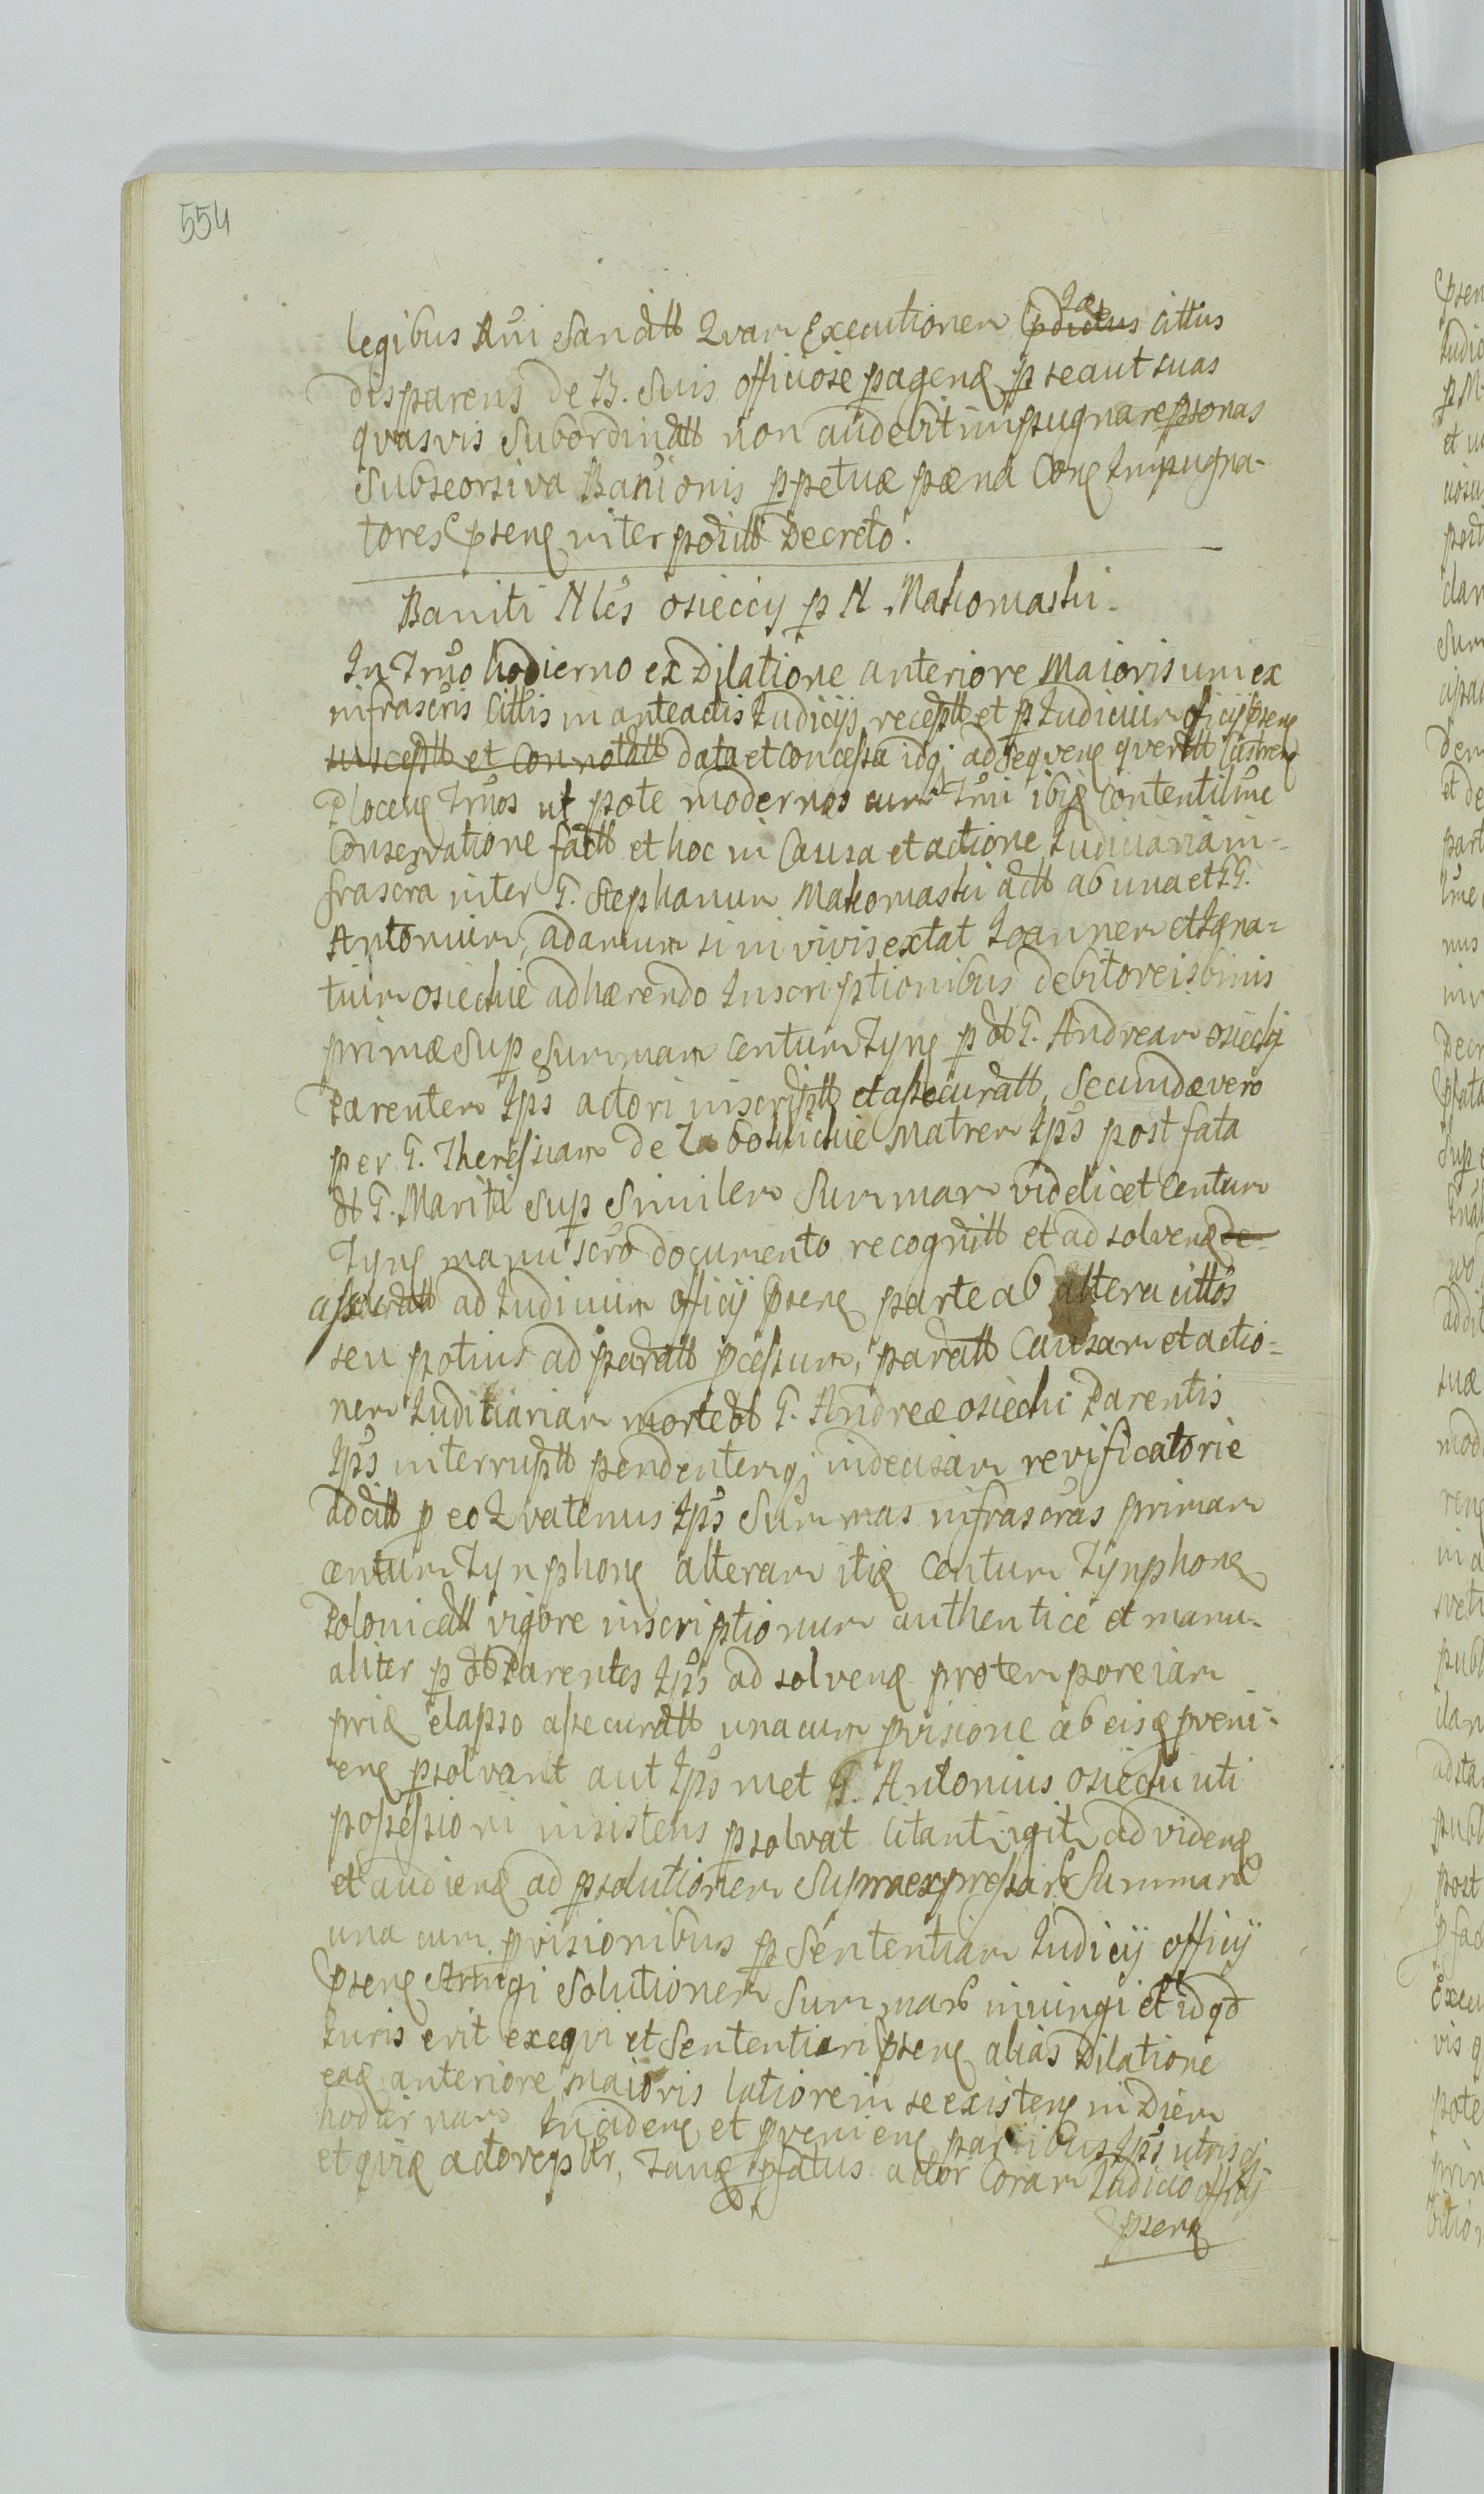 554
legibus Rni Sancitt Qvam Executionem Citus
disparens de B. Suis officiose pagenę pseaut suas
qvasvis Subordinatt non audebit impugnare psonas
Subseorsiva Banionis ppetuæ pæna Conę Impugna-
tores psenę interpositt Decreto.
Baniti Nles osieccy p N. Makomaski.
In Truo hodierno ex Dilatione anteriore Maioris uni ex
infrascris Cittis in anteactis Iudicijs receptt et p Iudicium officij psenę
susceptt et Connotatt data et concessa idq ad seqvenę Castrenę
Plocenę Truos ut pote modernos cum Trui ibię
Conservatione factt et hoc in Causa et actione Iudiciaria in-
frascra inter G. Stephanum Makomaski actt ab una et GG.
Antonium, adamum si in vivis extat Ioannem et Igna-
tium osieckie adhærendo Inscriptionibus debitoreis binis
primæ sup summam centum Tynę p dt G. Andream osiecki
Parentem Ips actori inscriptt et assecuratt, Secundæ vero
per G. Theressiam de Matrem Ips post fata
dt G. Mariti sup Similem Summam videlicet Centum
Tynę manu scro documento recognitt et ad solvenę de-
assecuratt ad Iudicium officij psenę parte ab altera cittos
seu potius ad paratt pcessum, paratt Causam et actio-
nem Iuditiariam morte dt G. Andreæ osiecki Parentis
Ips interruptt pendentemq indecisam revificatorie
adcitt p eo Qvatenus Ips Summas infrascras primam
centum Tynphonę alteram itię Centum Tynphonę
Polonicatt vigore inscriptionum authentice et manu-
aliter p dt Parentes Ips ad solvenę pro tempore iam
prię elapso assecuratt una cum pvisione ab eisę pveni-
enę psolvant aut Ips met G. Antonius osiecki uti
possessioni insistens psolvat Citant igit ad videnę
et audienę ad psolutionem Supraexpressar Summar
una cum pvisionibus p Sententiam Iudicij officij
psenę Stringi Solutionem Summar iniungi et id qd
Iuris erit exeqvi et Sententiari psenę alias Dilatione
eaę anteriore Maioris latiorem se existenę in Diem
hodiernam Incidenę et pvenienę partibus Ips utrisq
et qvię actore psllr, Tanę pfatus actor Coram Iudicio officij
psenę